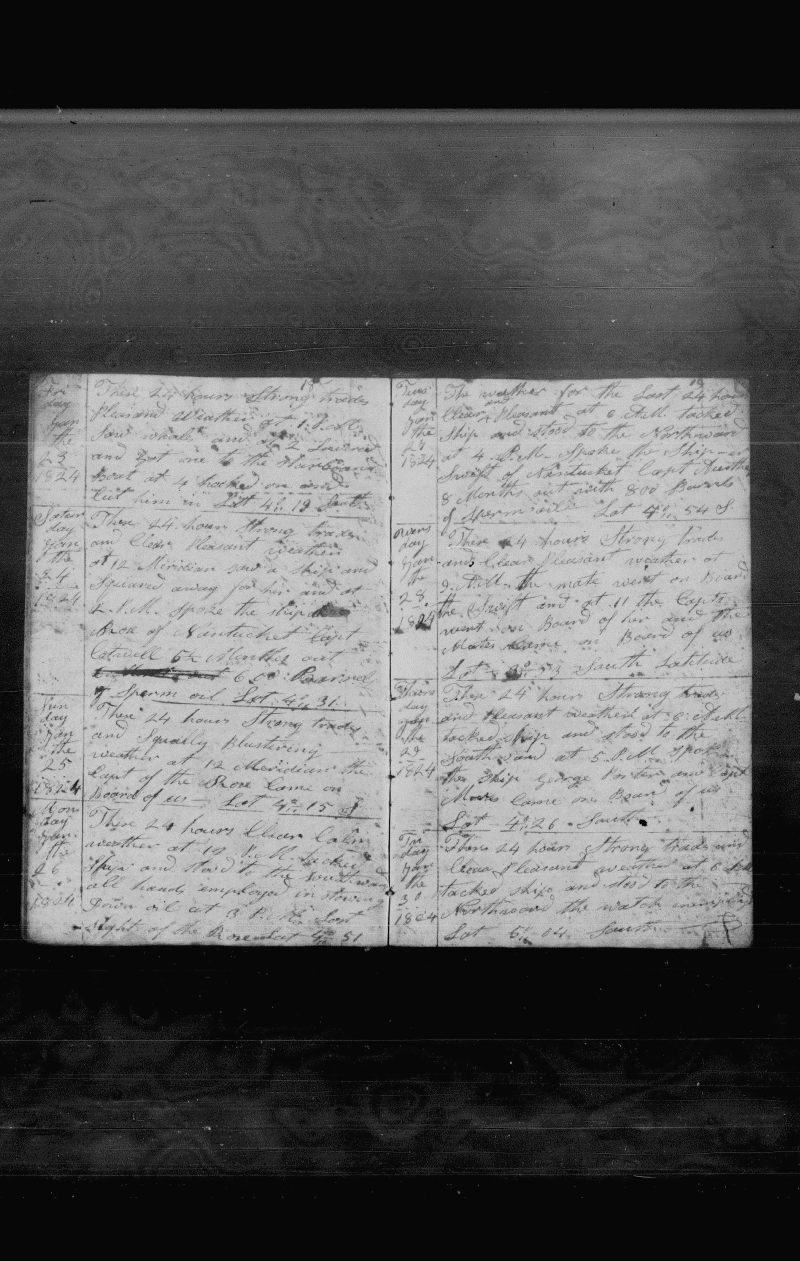 15
Fri
day
Jan
the
23
1824
These 24 hours Strong trades
Pleasand Weather at 1 P.M.
Saw whale and Lowered
and Got one to the Starboard
Boat at 4 hooked on and
Cut him in Lat 4°,, 19 South
Satur
day
Jan
the
24
1824
These 24 hour Strong trades
and Clear Pleasant weather
at 12 Meridian saw a Ship and
Squared away for her and at
2 P.M. Spoke the Ship
Rose of Nantucket Capt
5½ Months out
600 Barrels
of Sperm oil Lat 4°,, 31
Sun
day
Jan
the
25
1824
These 24 hours Strong trades
and Squally Blustering
weather at 12 Meridian the
Capt of the Rose Came on
Board of us — Lat 4°,, 15 S
Mon
day
Jan
the
26
1824
These 24 hours Clear Calm
weather at 10 tacked
Ship and stood to the
all hands employed in stowing
Down oil at 3 P.M. Lost
sight of the Rose Lat 4°,, 51
16
Tues
day
Jan
the
1824
The weather for the Last 24 hours
Clear Pleasant at 6 A.M. tacked
Ship and stood to the Northward
at 4 P.M. Spoke the Ship
Swift of Nantucket Capt
8 Months out with 800 Barrels
of Sperm oil Lat 4°,, 54 S.
day
Jan
the
28
1824
These 24 hours Strong trades
and Clear Pleasant weather at
9 A.M. the mate went on Board
the Swift and at 11 the Capt
went on Board of her and the
Mate Came on Board of us
Lat 53 South Latitude
Thurs
day
Jan
the
29
1824
These 24 hours Strong trades
and Pleasant weather at 6 A.M.
tacked Ship and stood to the
Southward at 5 P.M. Spoke
the Ship George Porter and Capt
Came on Board of us
Lat — 4°,, 26 South
Fri
day
Jan
the
30
1824
These 24 hours Strong trades and
Clear Pleasant weather at 6
tacked Ship and stood to the
Northward the watch employed
Lat 5°,, 04 South